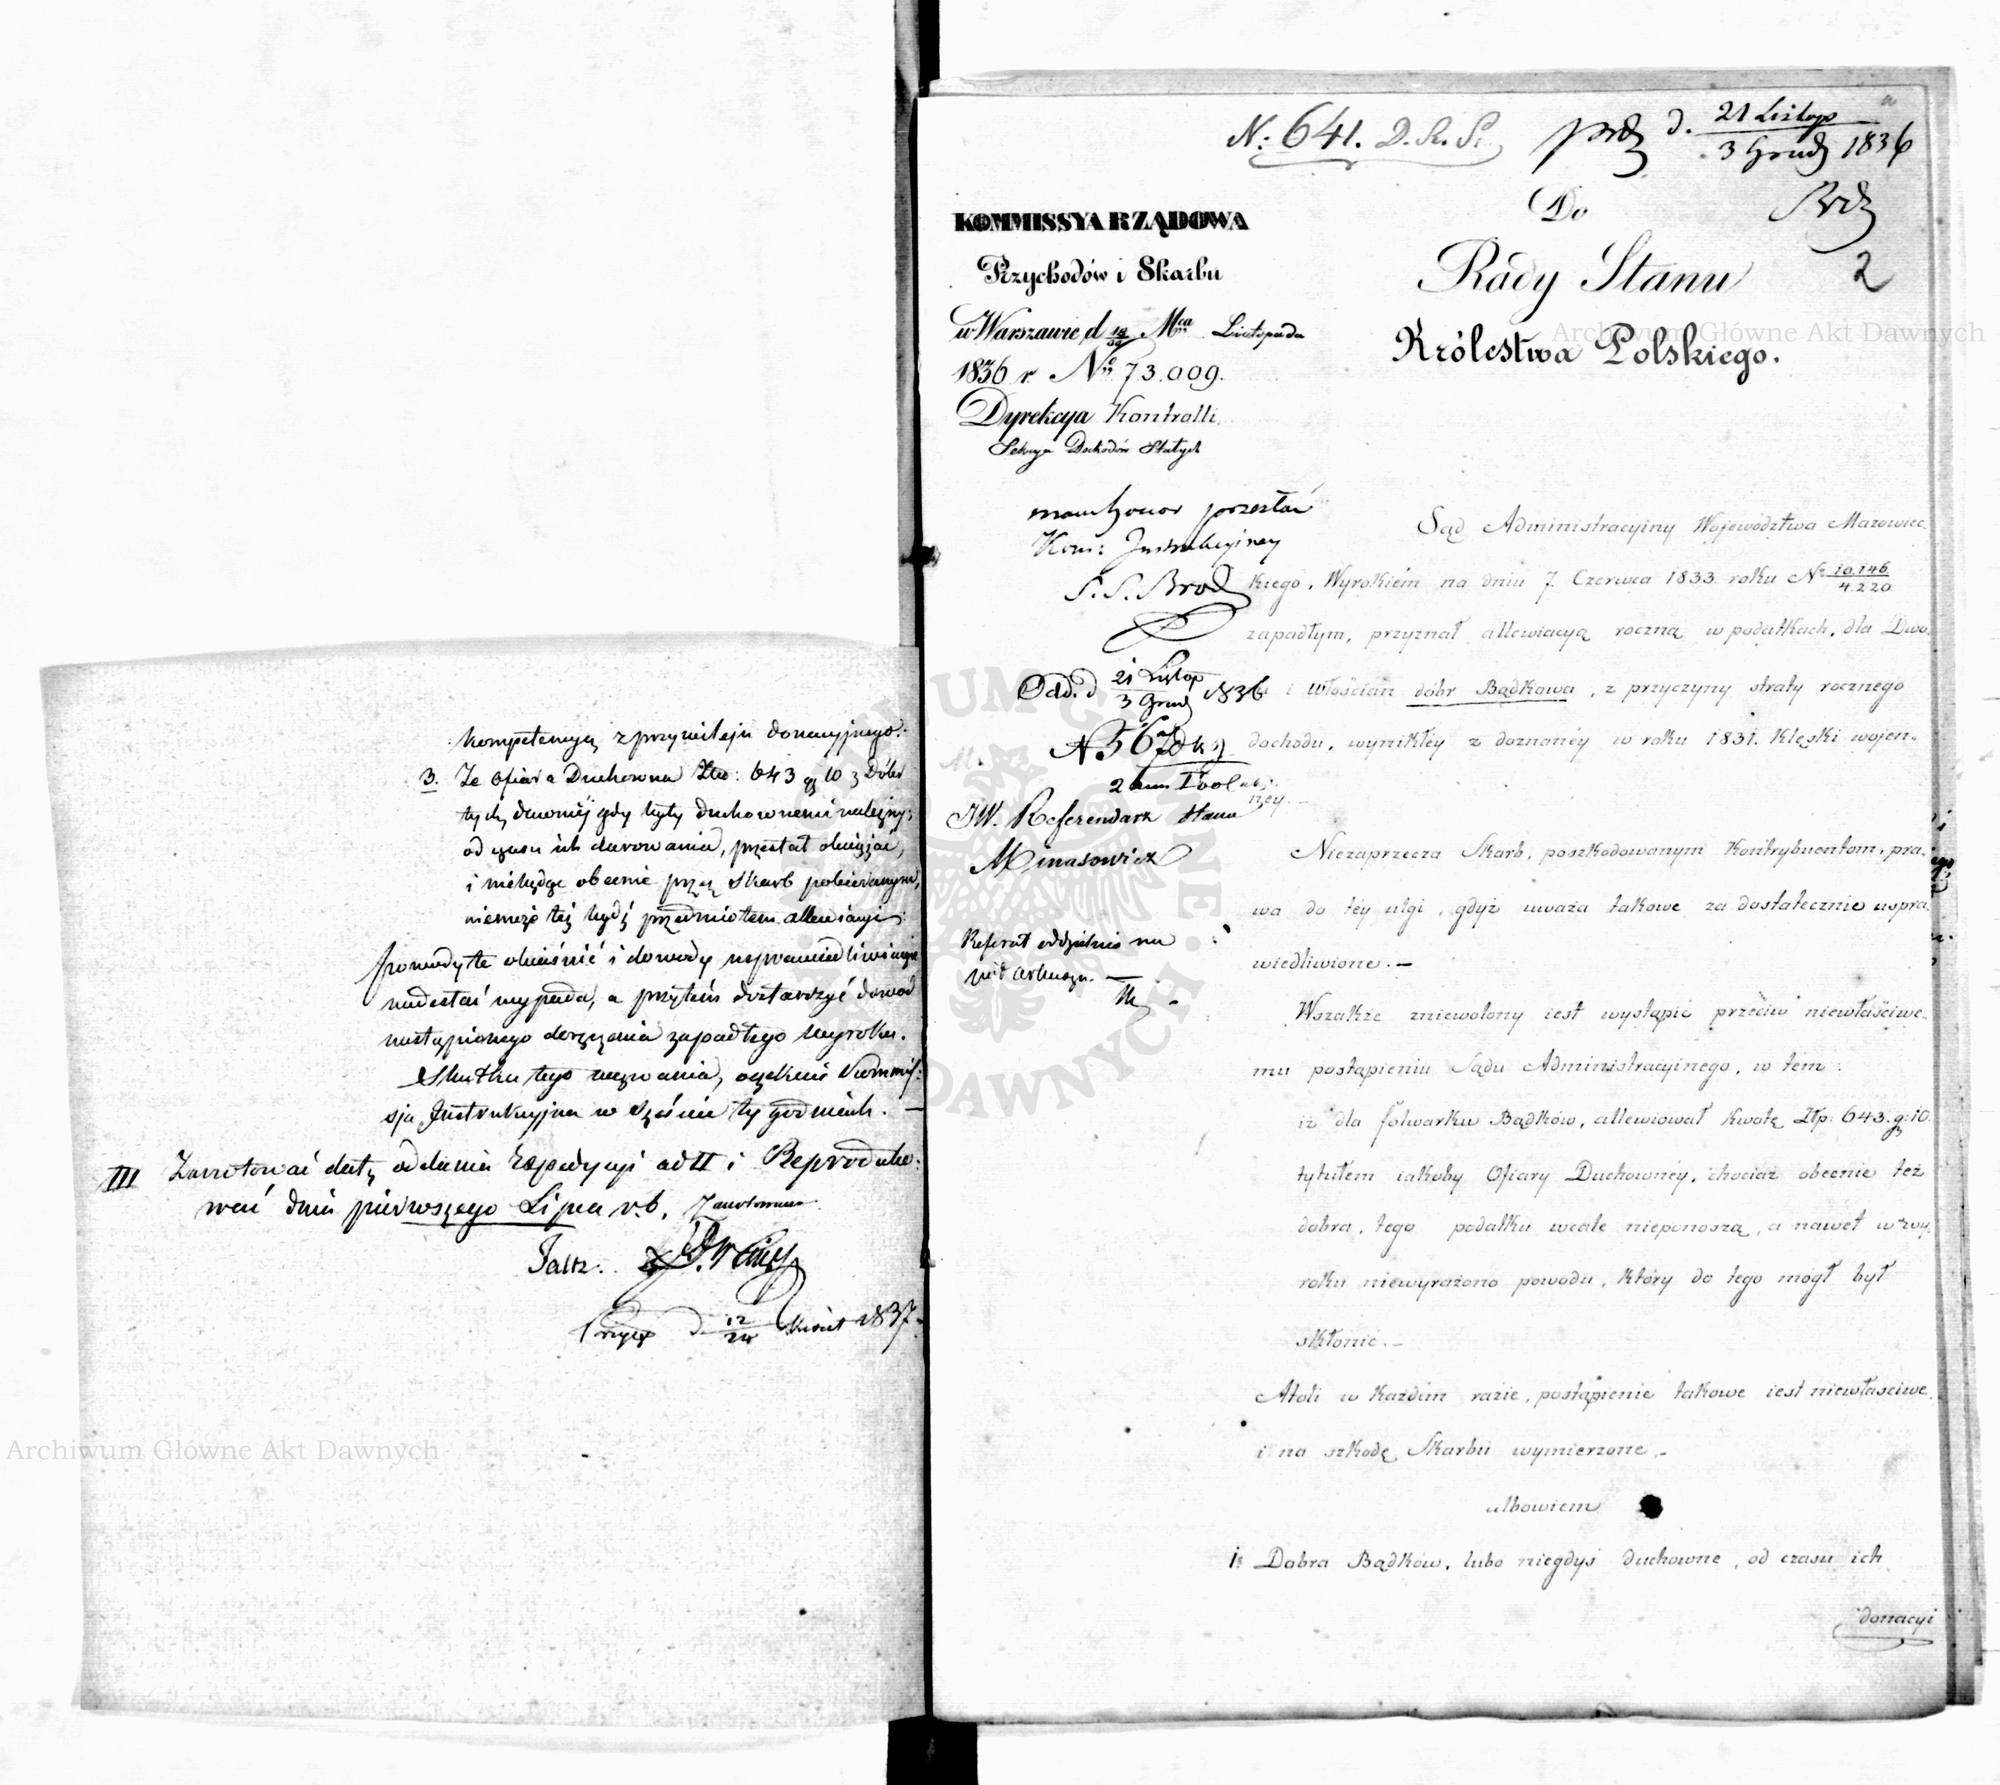 kompetencyą z przywileju donacyjnego.
3. Że ofiara Duchowna Złtp: 643 gr 10 z Dóbr
tych, dawniéj gdy były duchownemi należny;
od czasu ich darowania, przestał obciążać,
i niebędąc obecnie przez Skarb pobieranym,
niemoże też bydź przedmiotem allewiacyi;
powody te obiaśnić i dowody usprawiedliwiające
nadesłać wypada, a przytém dostarczyć dowód
nastąpionego doręczenia zapadłego wyroku.
Skutku tego wezwania, oczekuie Kommis-
sja Instrukcyjna w sześciu tygodniach. —
III Zanotować datę oddania Expedycyi ad II i Reproduko-
wać dnia pierwszego Lipca r. b. Zanotowano
d 12/24 Kwiet 1837
N: 641. D. R. S. d. 21 Listop / 3 Grud 1836
Do
Rady Stanu 2
Królestwa Polskiego.
KOMMISSYA RZĄDOWA
Przychodów i Skarbu
w Warszawie d 18/30 Mca Listopada
1836 r. No 73.009.
Dyrekcya Kontrolli
Sekcya Dochodów Stałych
mam honor przesłać
Kom: Instrukcyjney
S. S. Brod
Odd. d 21 Listop / 3 Grud 1836
JW. Referendarz Stanu
Minasowicz
Referat oddzielnie na
pół arkuszu. —
Sąd Administracyiny Województwa Mazowiec-
kiego, Wyrokiem na dniu 7. Czerwca 1833. roku No 10.146/4.220
zapadłym, przyznał allewiacyą roczną w podatkach, dla Dwo-
ru i Włościan dóbr Bądkowa, z przyczyny straty rocznego
dochodu, wynikłéy z doznanéy w roku 1831. klęski wojen-
néy. —
Niezaprzecza Skarb, poszkodowanym Kontrybuentom, pra-
wa do téy ulgi, gdyż uważa takowe za dostatecznie uspra-
wiedliwione. —
Wszakże zniewolony iest wystąpić przeciw niewłaściwe-
mu postąpieniu Sądu Administracyinego, w tem:
iż dla folwarku Bądków, allewiował kwotę Złp: 643. gr: 10.
tytułem iakoby Ofiary Duchownéy, chociaż obecnie też
dobra, tego podatku wcale nieponoszą, a nawet w wy-
roku niewyrażono powodu, który do tego mógł był
skłonić. —
Atoli w każdém razie, postąpienie takowe iest niewłaściwe,
i na szkodę Skarbu wymierzone, —
albowiem
1. Dobra Bądków, lubo niegdyś duchowne, od czasu ich
donacyi
Archiwum Główne Akt Dawnych
Archiwum Główne Akt Dawnych